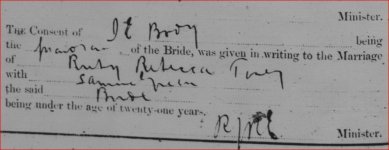 Minister.
The Consent of J E Body being
the guardian of the Bride, was given in writing to the Marriage
of Ruby Rebecca
with Samuel
the said Bride
being under the age of twenty-one years.
Minister.